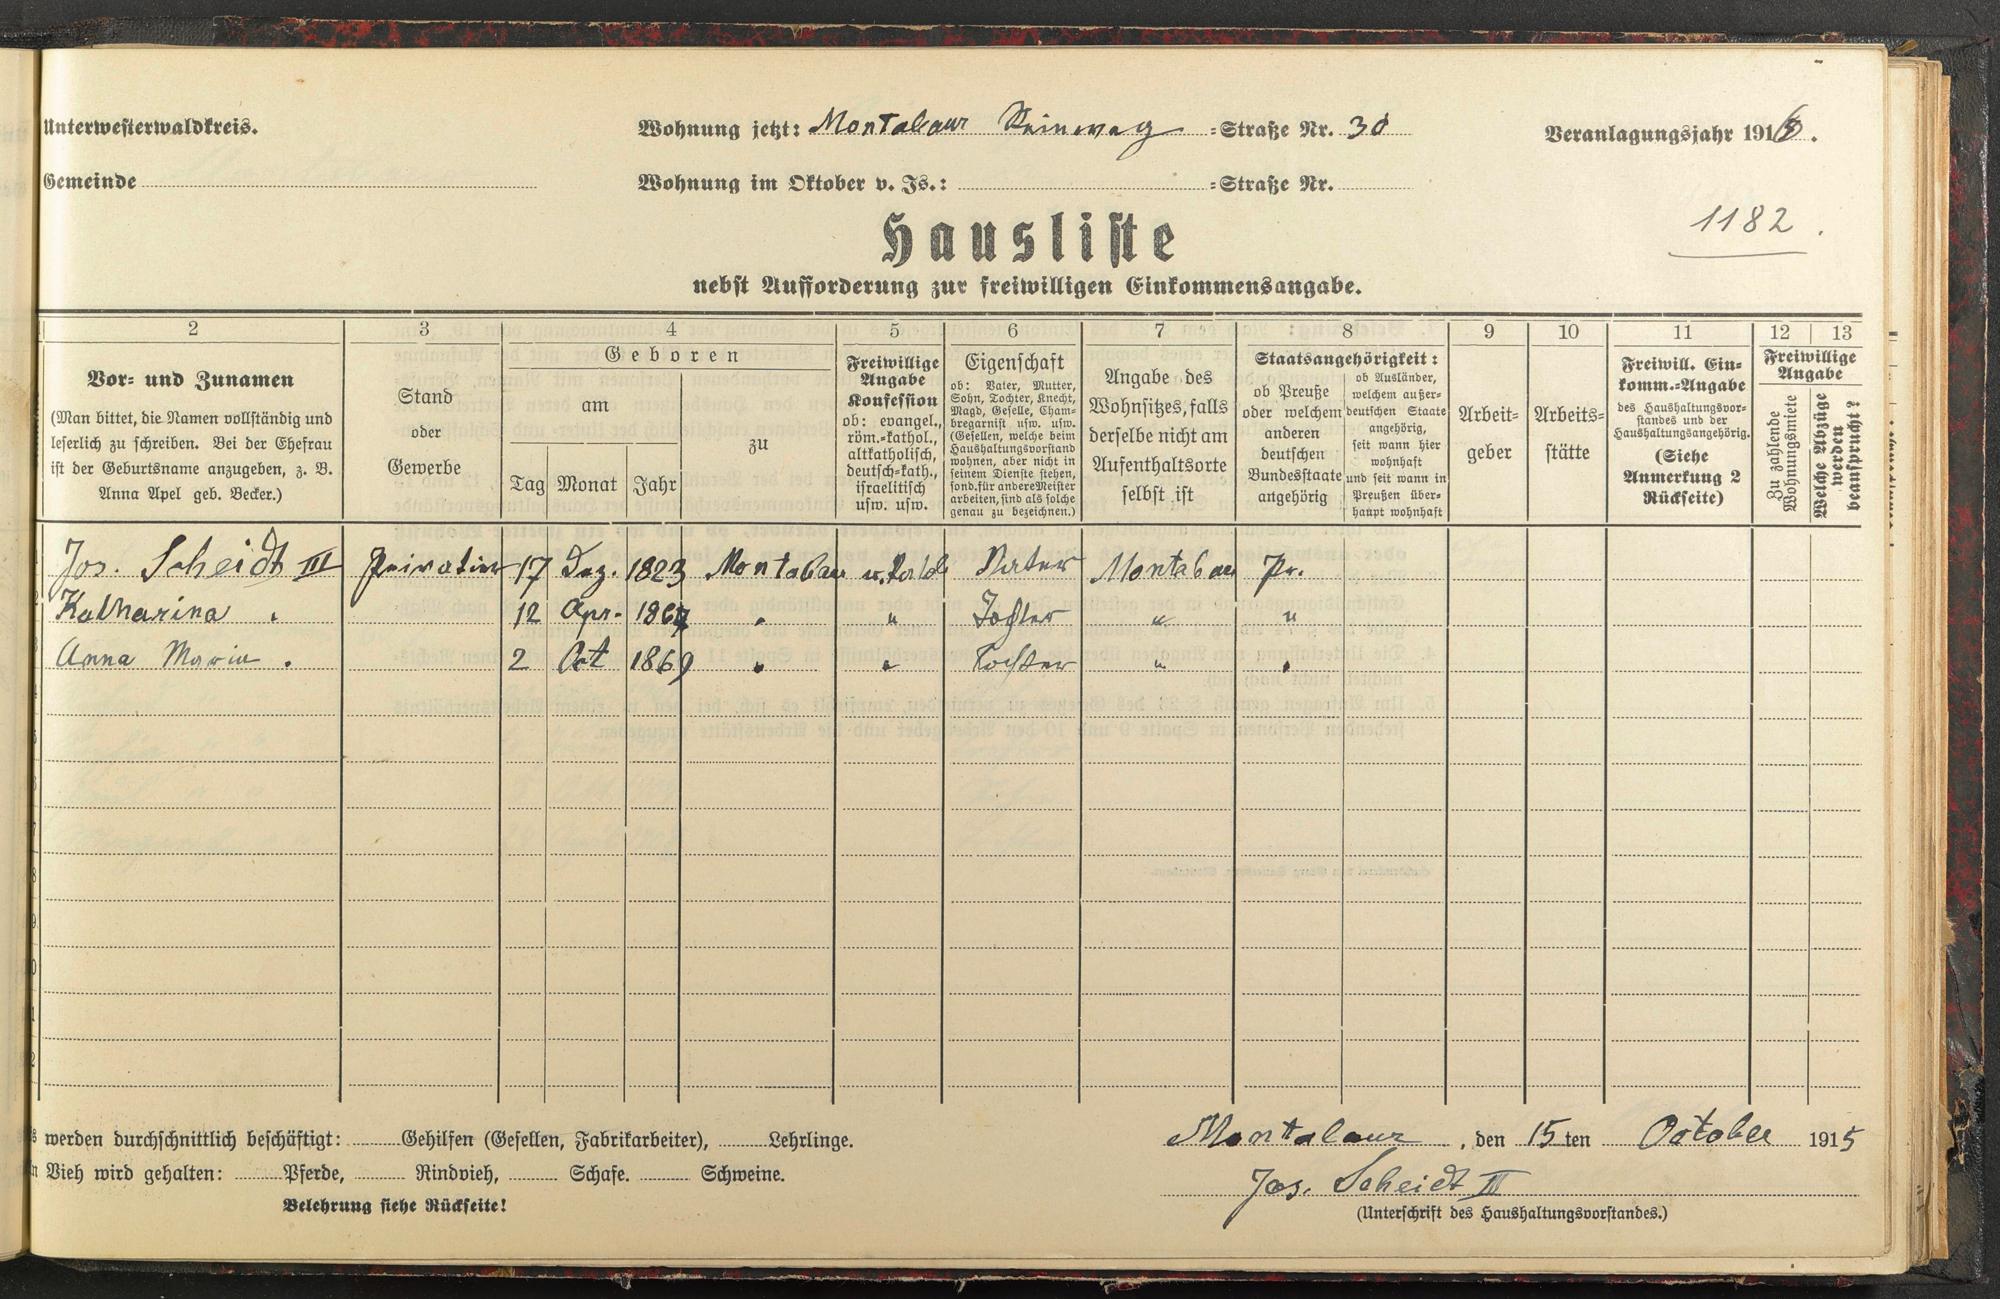 Unterwesterwaldkreis.
Wohnung jetzt: Montabaur Steinweg =Straße Nr. 30
Veranlagungsjahr 1916.
Gemeinde
Wohnung im Oktober v. Js.: =Straße Nr.
1182.
Hausliste
nebst Aufforderung zur freiwilligen Einkommensangabe.
2 3 4 5 6 7 8 9 10 11 12 13
Vor- und Zunamen
(Man bittet, die Namen vollständig und
leserlich zu schreiben. Bei der Ehefrau
ist der Geburtsname anzugeben, z. B.
Anna Apel geb. Becker.)
Stand
oder
Gewerbe
Geboren
am
Tag Monat Jahr
zu
Freiwillige
Angabe
Konfession
ob: evangel.,
röm.-kathol.,
altkatholisch,
deutsch-kath.,
israelitisch
usw. usw.
Eigenschaft
ob: Vater, Mutter,
Sohn, Tochter, Knecht,
Magd, Geselle, Cham-
bregarnist usw. usw.
(Gesellen, welche beim
Haushaltungsvorstand
wohnen, aber nicht in
seinem Dienste stehen,
sond. für andere Meister
arbeiten, sind als solche
genau zu bezeichnen.)
Angabe des
Wohnsitzes, falls
derselbe nicht am
Aufenthaltsorte
selbst ist
Staatsangehörigkeit:
ob Preuße
oder welchem
anderen
deutschen
Bundesstaate
angehörig
ob Ausländer,
welchem außer-
deutschen Staate
angehörig,
seit wann hier
wohnhaft
und seit wann in
Preußen über-
haupt wohnhaft
Arbeit-
geber
Arbeits-
stätte
Freiwill. Ein-
komm.-Angabe
des Haushaltungsvor-
standes und der
Haushaltungsangehörig.
(Siehe
Anmerkung 2
Rückseite)
Freiwillige
Angabe
Zu zahlende
Wohnungsmiete
Welche Abzüge
werden
beansprucht?
Jos. Scheidt III Privatier 17 Dez. 1823 Montabaur Vater Montabaur Pr.
Katharina " 12 Apr. 1867 " " Tochter " "
Anna Maria " 2 Oct 1869 " " Tochter " "
werden durchschnittlich beschäftigt: Gehilfen (Gesellen, Fabrikarbeiter), Lehrlinge.
Montabaur, den 15ten October 1915
Vieh wird gehalten: Pferde, Rindvieh, Schafe. Schweine.
Jos. Scheidt III
Belehrung siehe Rückseite!
(Unterschrift des Haushaltungsvorstandes.)